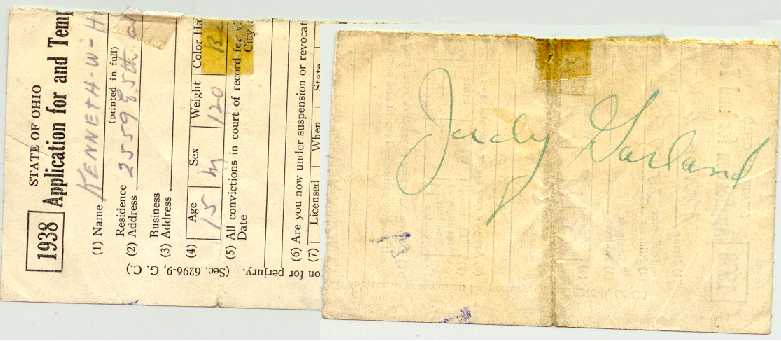 STATE OF OHIO
1938 Application for and Temp
(1) Name KENNETH-W-H
(printed in full)
Residence
(2) Address 2559 85th
Business
(3) Address
(4) Age 15 Sex M Weight 120 Color Ha
(5) All convictions in court of record for
Date City
(6) Are you now under suspension or revocat
(7) Licensed When State
on for perjury. (Sec. 6296-9, G. C.)
Judy Garland